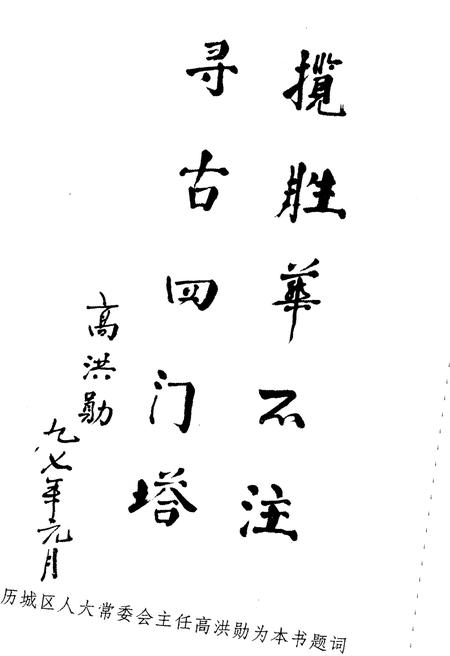 揽胜华不注
寻古四门塔
高洪勋
九七年元月
历城区人大常委会主任高洪勋为本书题词